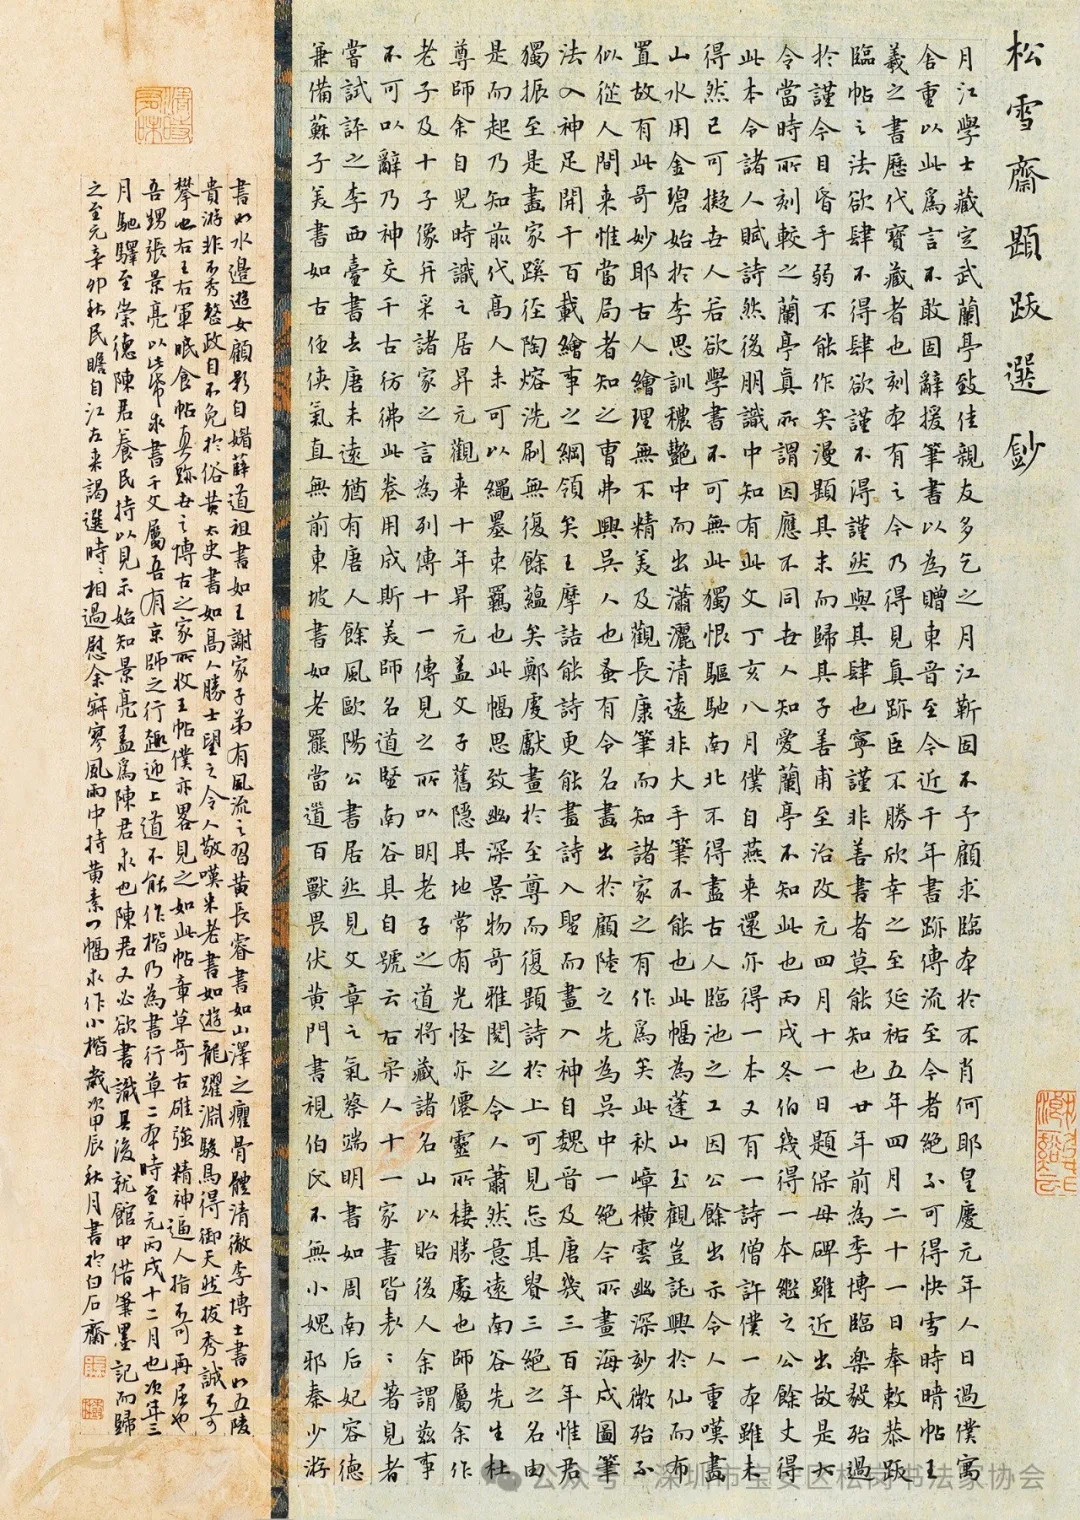 松雪齋題跋選鈔
月江學士藏定武蘭亭致佳親友多乞之月江靳固不予顧求臨本於不肖何耶皇慶元年人日過僕寓
舍重以此爲言不敢固辭援筆書以為贈東晉至今近千年書跡傳流至今者絕不可得快雪時晴帖王
羲之書歷代寶藏者也刻本有之今乃得見真跡臣不勝欣幸之至延祐五年四月二十一日奉敕恭跋
臨帖之法欲肆不得肆欲謹不得謹然與其肆也寧謹非善書者莫能知也廿年前為李博臨樂毅殆過
於謹今目昏手弱不能作矣漫題其末而歸其子善甫至治改元四月十一日題保母碑雖近出故是大
令當時所刻較之蘭亭真所謂因應不同世人知愛蘭亭不知此也丙戌冬伯幾得一本繼之公餘丈得
此本令諸人賦詩然後朋識中知有此文丁亥八月僕自燕来還亦得一本又有一詩僧許僕一本雖未
得然已可擬世人若欲學書不可無此獨恨驅馳南北不得盡古人臨池之工因公餘出示令人重嘆畫
山水用金碧始於李思訓穠艷中而出瀟灑清遠非大手筆不能也此幅為蓬山玉觀豈託興於仙而布
置故有此奇妙耶古人繪理無不精美及觀長康筆而知諸家之有作爲矣此秋嶂橫雲幽深妙微殆不
似從人間来惟當局者知之曹弗興吳人也蚤有令名畫出於顧陸之先為吳中一絕今所畫海戍圖筆
法入神足開千百載繪事之綱領矣王摩詰能詩更能畫詩入聖而畫入神自魏晉及唐幾三百年惟君
獨振至是畫家蹊徑陶熔洗刷無復餘蘊矣鄭虔獻畫於至尊而復題詩於上可見忘其譽三絕之名由
是而起乃知前代高人未可以繩墨束羈也此幅思致幽深景物奇雅閱之令人蕭然意遠南谷先生杜
尊師余自兒時識之居昇元觀来十年昇元蓋文子舊隱其地常有光怪亦僊靈所棲勝處也師屬余作
老子及十子像并采諸家之言為列傳十一傳見之所以明老子之道將藏諸名山以貽後人余謂茲事
不可以辭乃神交千古彷彿此卷用成斯美師名道堅南谷其自號云右宋人十一家書皆表表著見者
嘗試評之李西臺書去唐未遠猶有唐人餘風歐陽公書居然見文章之氣蔡端明書如周南后妃容德
兼備蘇子美書如古任俠氣直無前東坡書如老羆當道百獸畏伏黃門書視伯氏不無小媿邪秦少游
書如水邊遊女顧影自媚薛道祖書如王謝家子弟有風流之習黃長睿書如山澤之癯骨體清徹李博士書如五陵
貴游非不秀整政自不免於俗黃太史書如高人勝士望之令人敬嘆米老書如遊龍躍淵駿馬得御天然拔秀誠不可
攀也右王右軍眠食帖真跡世之博古之家所收王帖僕亦畧見之如此帖章草奇古雄強精神逼人指不可再屈也
吾甥張景亮以此帋求書千文屬吾有京師之行趣迎上道不能作楷乃為書行草二本時至元丙戌十二月也次年三
月馳驛至崇德陳君養民持以見示始知景亮盖爲陳君求也陳君又必欲書識其後就館中借筆墨記而歸
之至元辛卯秋民瞻自江左来謁選時時相過慰余寂寥風雨中持黃素一幅求作小楷歲次甲辰秋月書於白石齋
公众号·深圳市宝安区松岗书法家协会